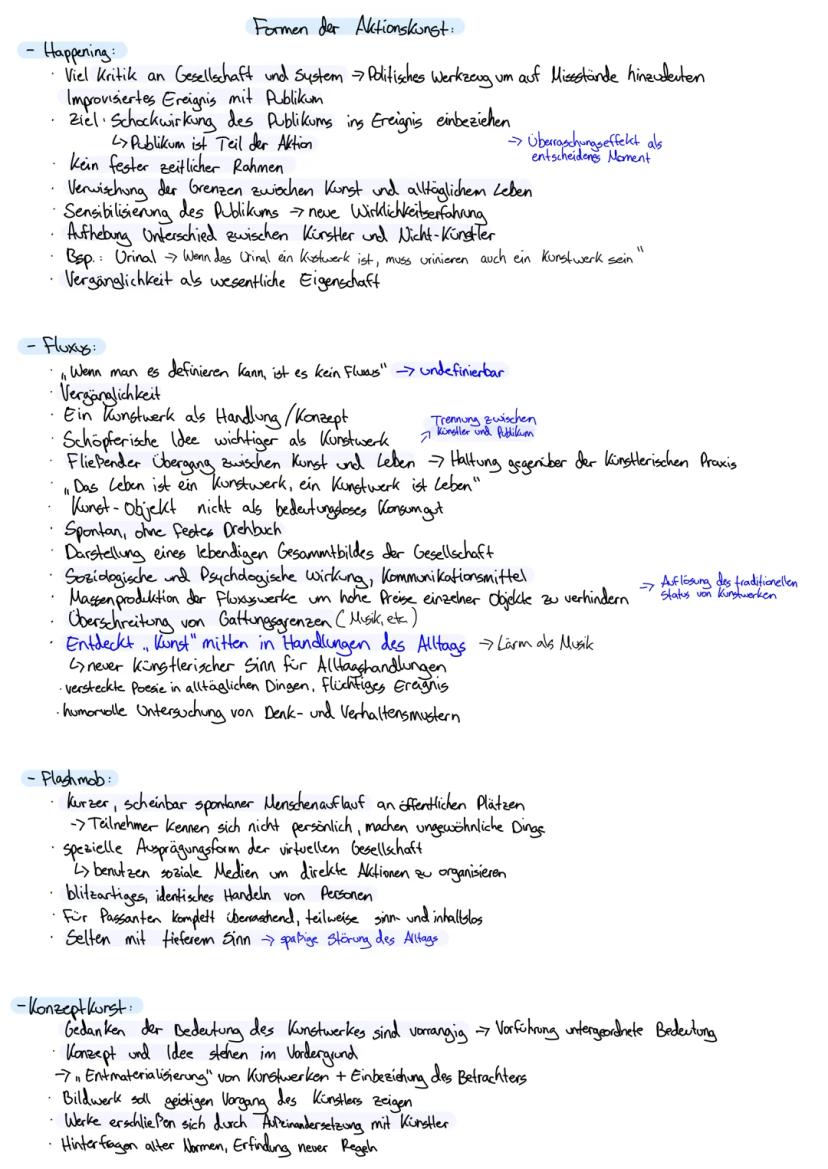 Formen der Aktionskunst:
- Happening:
· Viel Kritik an Gesellschaft und System → Politisches Werkzeug um auf Missstände hinzudeuten
Improvisiertes Ereignis mit Publikum
· Ziel: Schockwirkung des Publikums ins Ereignis einbeziehen
↳ Publikum ist Teil der Aktion
→ Überraschungseffekt als
entscheidenes Moment
· Kein fester zeitlicher Rahmen
· Verwischung der Grenzen zwischen Kunst und alltäglichem Leben
· Sensibilisierung des Publikums → neue Wirklichkeitserfahrung
· Aufhebung Unterschied zwischen Künstler und Nicht-Künstler
· Bsp.: Urinal → Wenn das Urinal ein Kustwerk ist, muss urinieren auch ein Kunstwerk sein"
· Vergänglichkeit als wesentliche Eigenschaft
- Fluxus:
· „Wenn man es definieren kann, ist es kein Fluxus" → undefinierbar
· Vergänglichkeit
· Ein Kunstwerk als Handlung/Konzept
· Schöpferische Idee wichtiger als Kunstwerk
→ Trennung zwischen
Künstler und Publikum
· Fließender Übergang zwischen Kunst und Leben → Haltung gegenüber der künstlerischen Praxis
· „Das Leben ist ein Kunstwerk, ein Kunstwerk ist Leben"
· Kunst-Objekt nicht als bedeutungsloses Konsumgut
· Spontan, ohne festes Drehbuch
· Darstellung eines lebendigen Gesammtbildes der Gesellschaft
· Soziologische und Psychologische Wirkung, Kommunikationsmittel
· Massenproduktion der Fluxuswerke um hohe Preise einzelner Objekte zu verhindern → Auflösung des traditionellen
Status von Kunstwerken
· Überschreitung von Gattungsgrenzen (Musik, etc.)
· Entdeckt „Kunst" mitten in Handlungen des Alltags → Lärm als Musik
↳ neuer künstlerischer Sinn für Alltagshandlungen
· versteckte Poesie in alltäglichen Dingen, flüchtiges Ereignis
· humorvolle Untersuchung von Denk- und Verhaltensmustern
- Flashmob:
· Kurzer, scheinbar spontaner Menschenauflauf an öffentlichen Plätzen
-> Teilnehmer kennen sich nicht persönlich, machen ungewöhnliche Dinge
· spezielle Ausprägungsform der virtuellen Gesellschaft
↳ benutzen soziale Medien um direkte Aktionen zu organisieren
· blitzartiges, identisches Handeln von Personen
· Für Passanten komplett überraschend, teilweise sinn- und inhaltslos
· Selten mit tieferem Sinn → spaßige Störung des Alltags
- Konzeptkunst:
Gedanken der Bedeutung des Kunstwerkes sind vorrangig → Vorführung untergeordnete Bedeutung
· Konzept und Idee stehen im Vordergrund
→ „Entmaterialisierung" von Kunstwerken + Einbeziehung des Betrachters
· Bildwerk soll geistigen Vorgang des Künstlers zeigen
· Werke erschließen sich durch Auseinandersetzung mit Künstler
· Hinterfragen alter Normen, Erfindung neuer Regeln